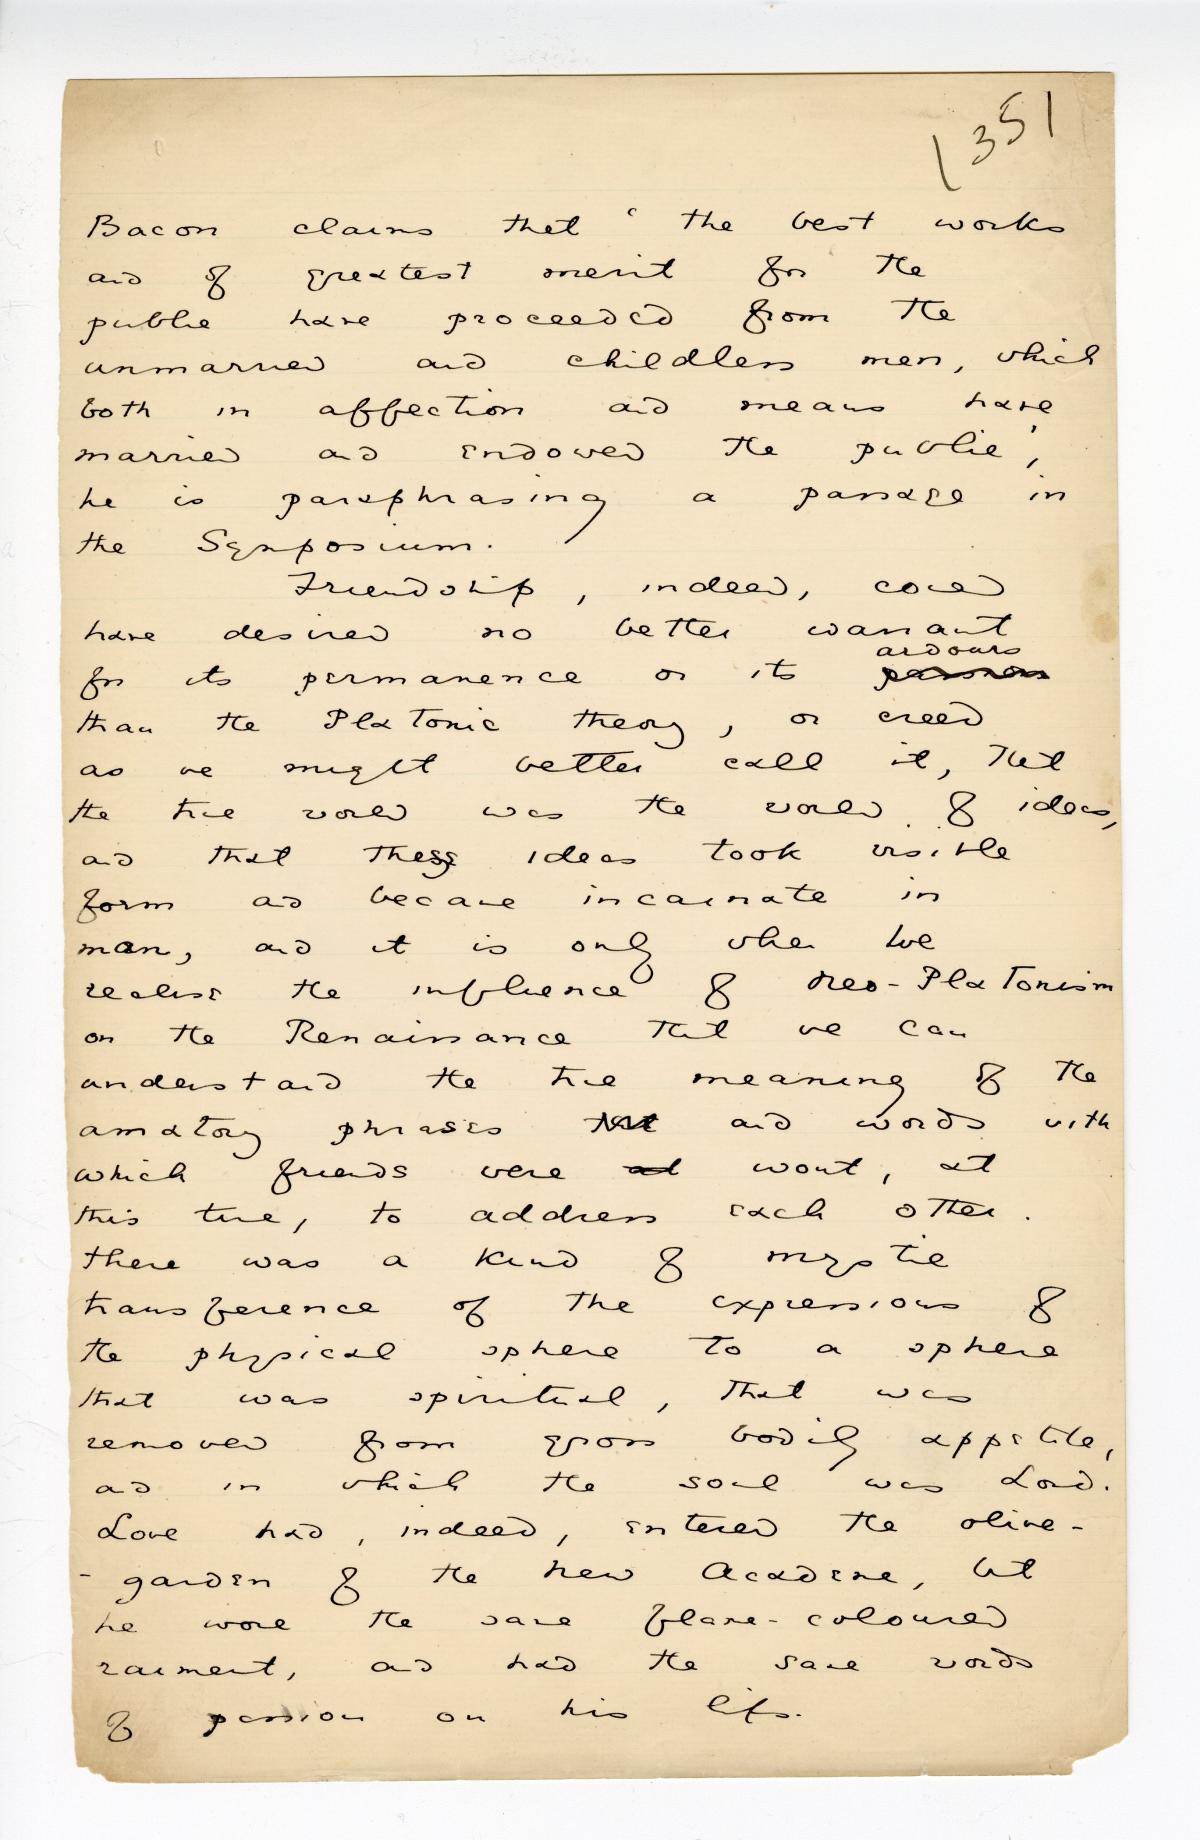 (35)
Bacon claims that ‘the best works
and of greatest merit for the
public have proceeded from the
unmarried and childless men, which
both in affection and means have
married and endowed the public’,
he is paraphrasing a passage in
the Symposium.
Friendship, indeed, could
have desired no better warrant
ardours
for its permanence or its passion
than the Platonic theory, or creed
as we might better call it, that
the true world was the world of ideas,
and that these ideas took visible
form and became incarnate in
man, and it is only when we
realise the influence of neo-Platonism
on the Renaissance that we can
understand the true meaning of the
amatory phrases and words with
which friends were wont, at
this time, to address each other.
There was a kind of mystic
transference of the expressions of
the physical sphere to a sphere
that was spiritual, that was
removed from gross bodily appetite,
and in which the soul was Lord.
Love had, indeed, entered the olive-
-garden of the new Academe, but
he wore the same flame-coloured
raiment, and had the same words
of passion on his lips.